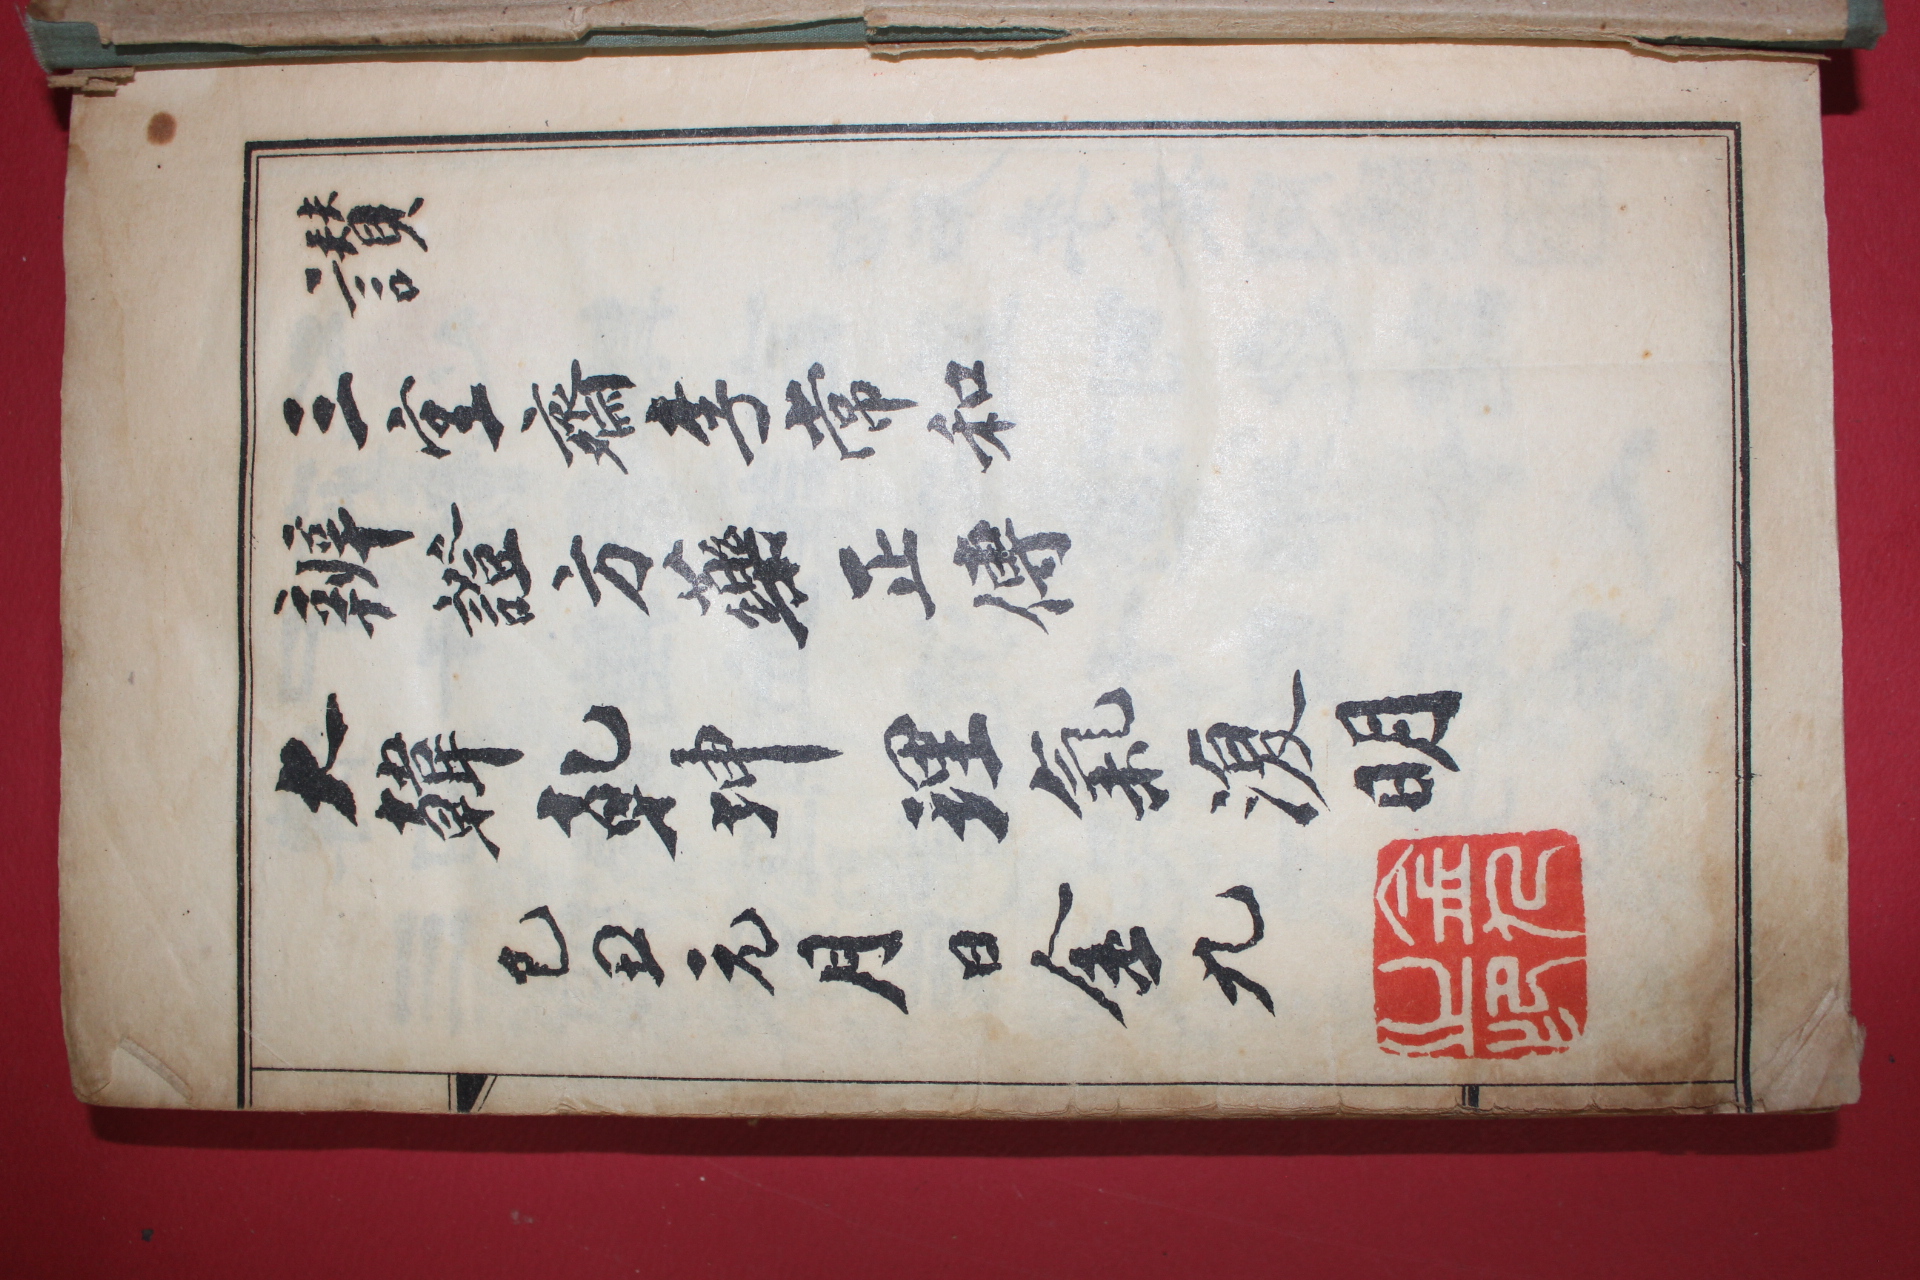 讚
三空齋李常和
辨證方藥正傳
大韓乾坤 理氣復明
己丑元月 日 金九
金九
之印